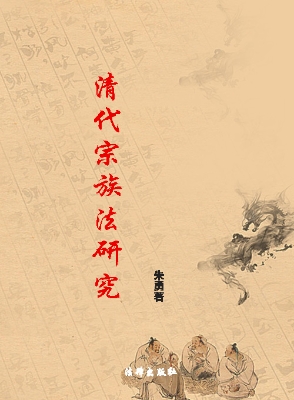 清代宗族法研究
朱勇著
法律出版社